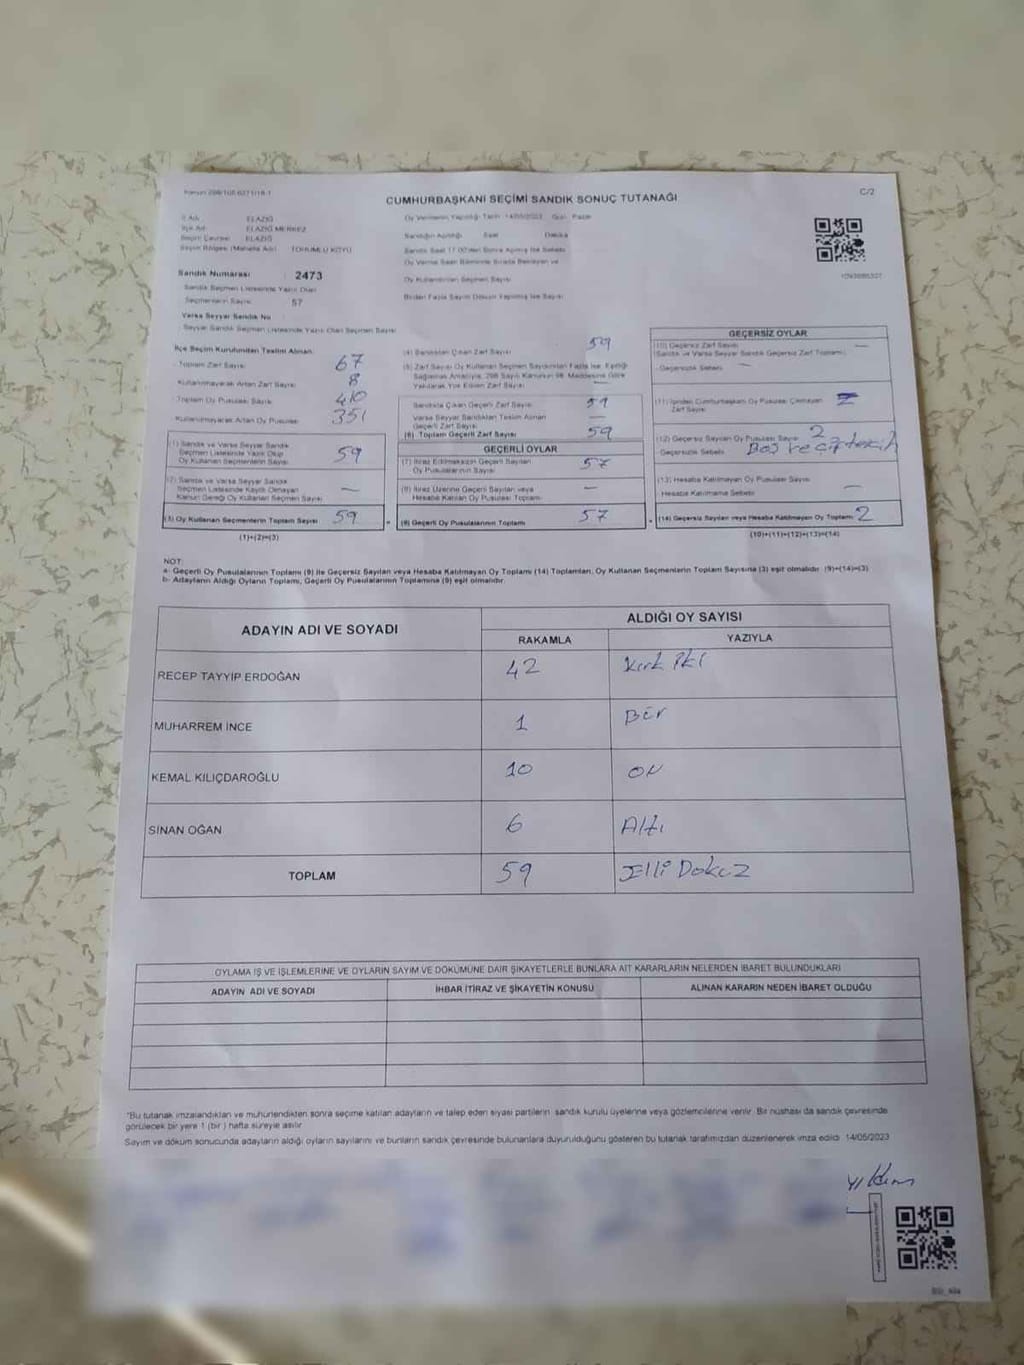 C/2
CUMHURBAŞKANI SEÇİMİ SANDIK SONUÇ TUTANAĞI
İl Adı : ELAZIĞ
İlçe Adı : ELAZIĞ MERKEZ
Seçim Çevresi : ELAZIĞ
Oy Vermenin Yapıldığı Tarih 14/05/2023 Gün Pazar
Sandığın Açıldığı Saat Dakika
Sandık Numarası : 2473
Sandık Seçmen Listesinde Yazılı Olan
Seçmenlerin Sayısı : 57
Oy Kullandırılan Seçmen Sayısı
Varsa Seyyar Sandık No
Seyyar Sandık Seçmen Listesinde Yazılı Olan Seçmen Sayısı
İlçe Seçim Kurulundan Teslim Alınan:
Toplam Zarf Sayısı 67
Kullanılmayarak Artan Zarf Sayısı 8
Toplam Oy Pusulası Sayısı 410
Kullanılmayarak Artan Oy Pusulası 351
(1) Sandık ve Varsa Seyyar Sandık
Seçmen Listesinde Yazılı Olup
Oy Kullanan Seçmenlerin Sayısı 59
(2) Sandık ve Varsa Seyyar Sandık
Seçmen Listesinde Kayıtlı Olmayan
Kanun Gereği Oy Kullanan Seçmen Sayısı —
(3) Oy Kullanan Seçmenlerin Toplam Sayısı 59
(1)+(2)=(3)
(4) Sandıktan Çıkan Zarf Sayısı 59
(5) Zarf Sayısı Oy Kullanan Seçmen Sayısından Fazla ise, Eşitliği
Sağlamak Amacıyla, 298 Sayılı Kanunun 98. Maddesine Göre
Yakılarak Yok Edilen Zarf Sayısı —
Sandıkta Çıkan Geçerli Zarf Sayısı 59
Varsa Seyyar Sandıktan Teslim Alınan
Geçerli Zarf Sayısı —
(6) Toplam Geçerli Zarf Sayısı 59
GEÇERLİ OYLAR
(7) İtiraz Edilmeksizin Geçerli Sayılan
Oy Pusulalarının Sayısı 57
(8) İtiraz Üzerine Geçerli Sayılan veya
Hesaba Katılan Oy Pusulası Toplamı —
(9) Geçerli Oy Pusulalarının Toplamı 57
GEÇERSİZ OYLAR
(10) Geçersiz Zarf Sayısı —
(Sandık ve Varsa Seyyar Sandık Geçersiz Zarf Toplamı)
Geçersizlik Sebebi —
(11) İçinden Cumhurbaşkanı Oy Pusulası Çıkmayan
Zarf Sayısı
(12) Geçersiz Sayılan Oy Pusulası Sayısı 2
Geçersizlik Sebebi Boş ve çift
(13) Hesaba Katılmayan Oy Pusulası Sayısı
Hesaba Katılmama Sebebi —
(14) Geçersiz Sayılan veya Hesaba Katılmayan Oy Toplamı 2
(10)+(11)+(12)+(13)=(14)
NOT:
a- Geçerli Oy Pusulalarının Toplamı (9) ile Geçersiz Sayılan veya Hesaba Katılmayan Oy Toplamı (14) Toplamları, Oy Kullanan Seçmenlerin Toplam Sayısına (3) eşit olmalıdır. (9)+(14)=(3)
b- Adayların Aldığı Oyların Toplamı, Geçerli Oy Pusulalarının Toplamına (9) eşit olmalıdır.
ADAYIN ADI VE SOYADI
ALDIĞI OY SAYISI
RAKAMLA YAZIYLA
RECEP TAYYİP ERDOĞAN 42 Kırk İki
MUHARREM İNCE 1 Bir
KEMAL KILIÇDAROĞLU 10 ON
SİNAN OĞAN 6 Altı
TOPLAM 59 Elli Dokuz
OYLAMA İŞ VE İŞLEMLERİNE VE OYLARIN SAYIM VE DÖKÜMÜNE DAİR ŞİKAYETLERLE BUNLARA AİT KARARLARIN NELERDEN İBARET BULUNDUKLARI
ADAYIN ADI VE SOYADI İHBAR İTİRAZ VE ŞİKAYETİN KONUSU ALINAN KARARIN NEDEN İBARET OLDUĞU
*Bu tutanak imzalandıktan ve mühürlendikten sonra seçime katılan adayların ve talep eden siyasi partilerin sandık kurulu üyelerine veya gözlemcilerine verilir. Bir nüshası da sandık çevresinde
görülecek bir yere 1 (bir) hafta süreyle asılır.
Sayım ve döküm sonucunda adayların aldığı oyların sayılarını ve bunların sandık çevresinde bulunanlara duyurulduğunu gösteren bu tutanak tarafımızdan düzenlenerek imza edildi. 14/05/2023